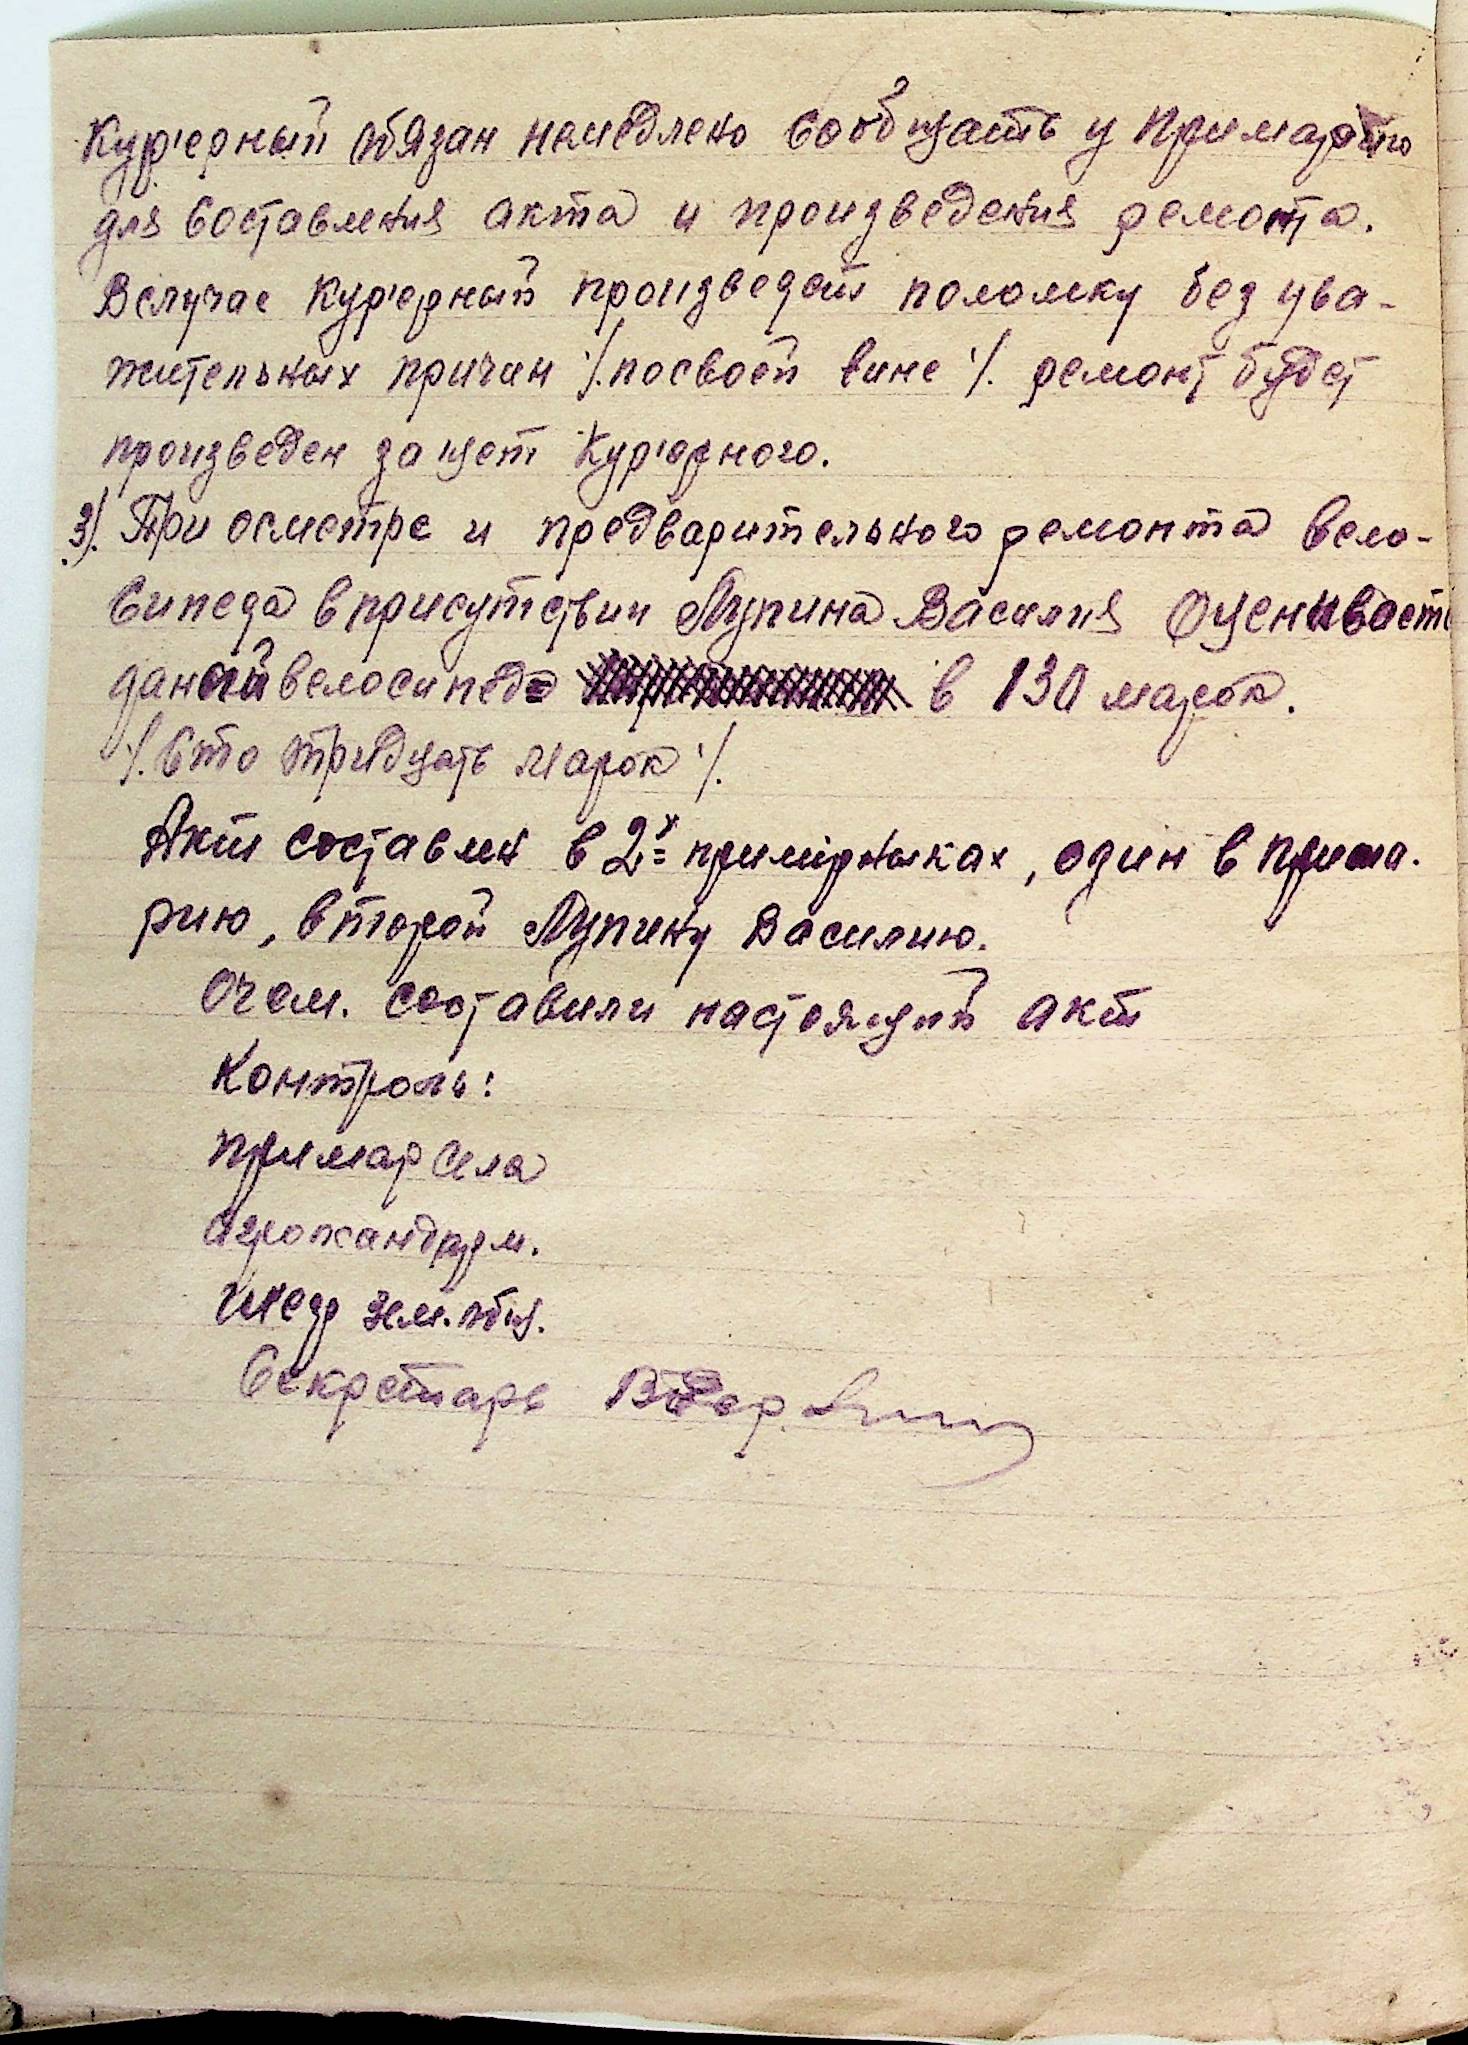 Кур'ерный обязан немедлено сообщать у Примарию
для составления акта и произведения ремонта.
Вслучае Кур'ерный произведет поломку без ува-
жительных причин ./. посвоей вине ./. ремонт будет
произведен за щет Кур'ерного.
3/. При осмотре и предварительного ремонта вело-
сипеда вприсутствии Лупина Василия Оценивает
даный велосипед в 130 марок.
./. Сто тридцать марок ./.
Акт составлен в 2х примірныках, один в прима-
рию, второй Лупину Василию.
Очем. составили настоящий акт
Контроль:
примар села
агрожандарм.
шеф зем. общ.
Секретарь